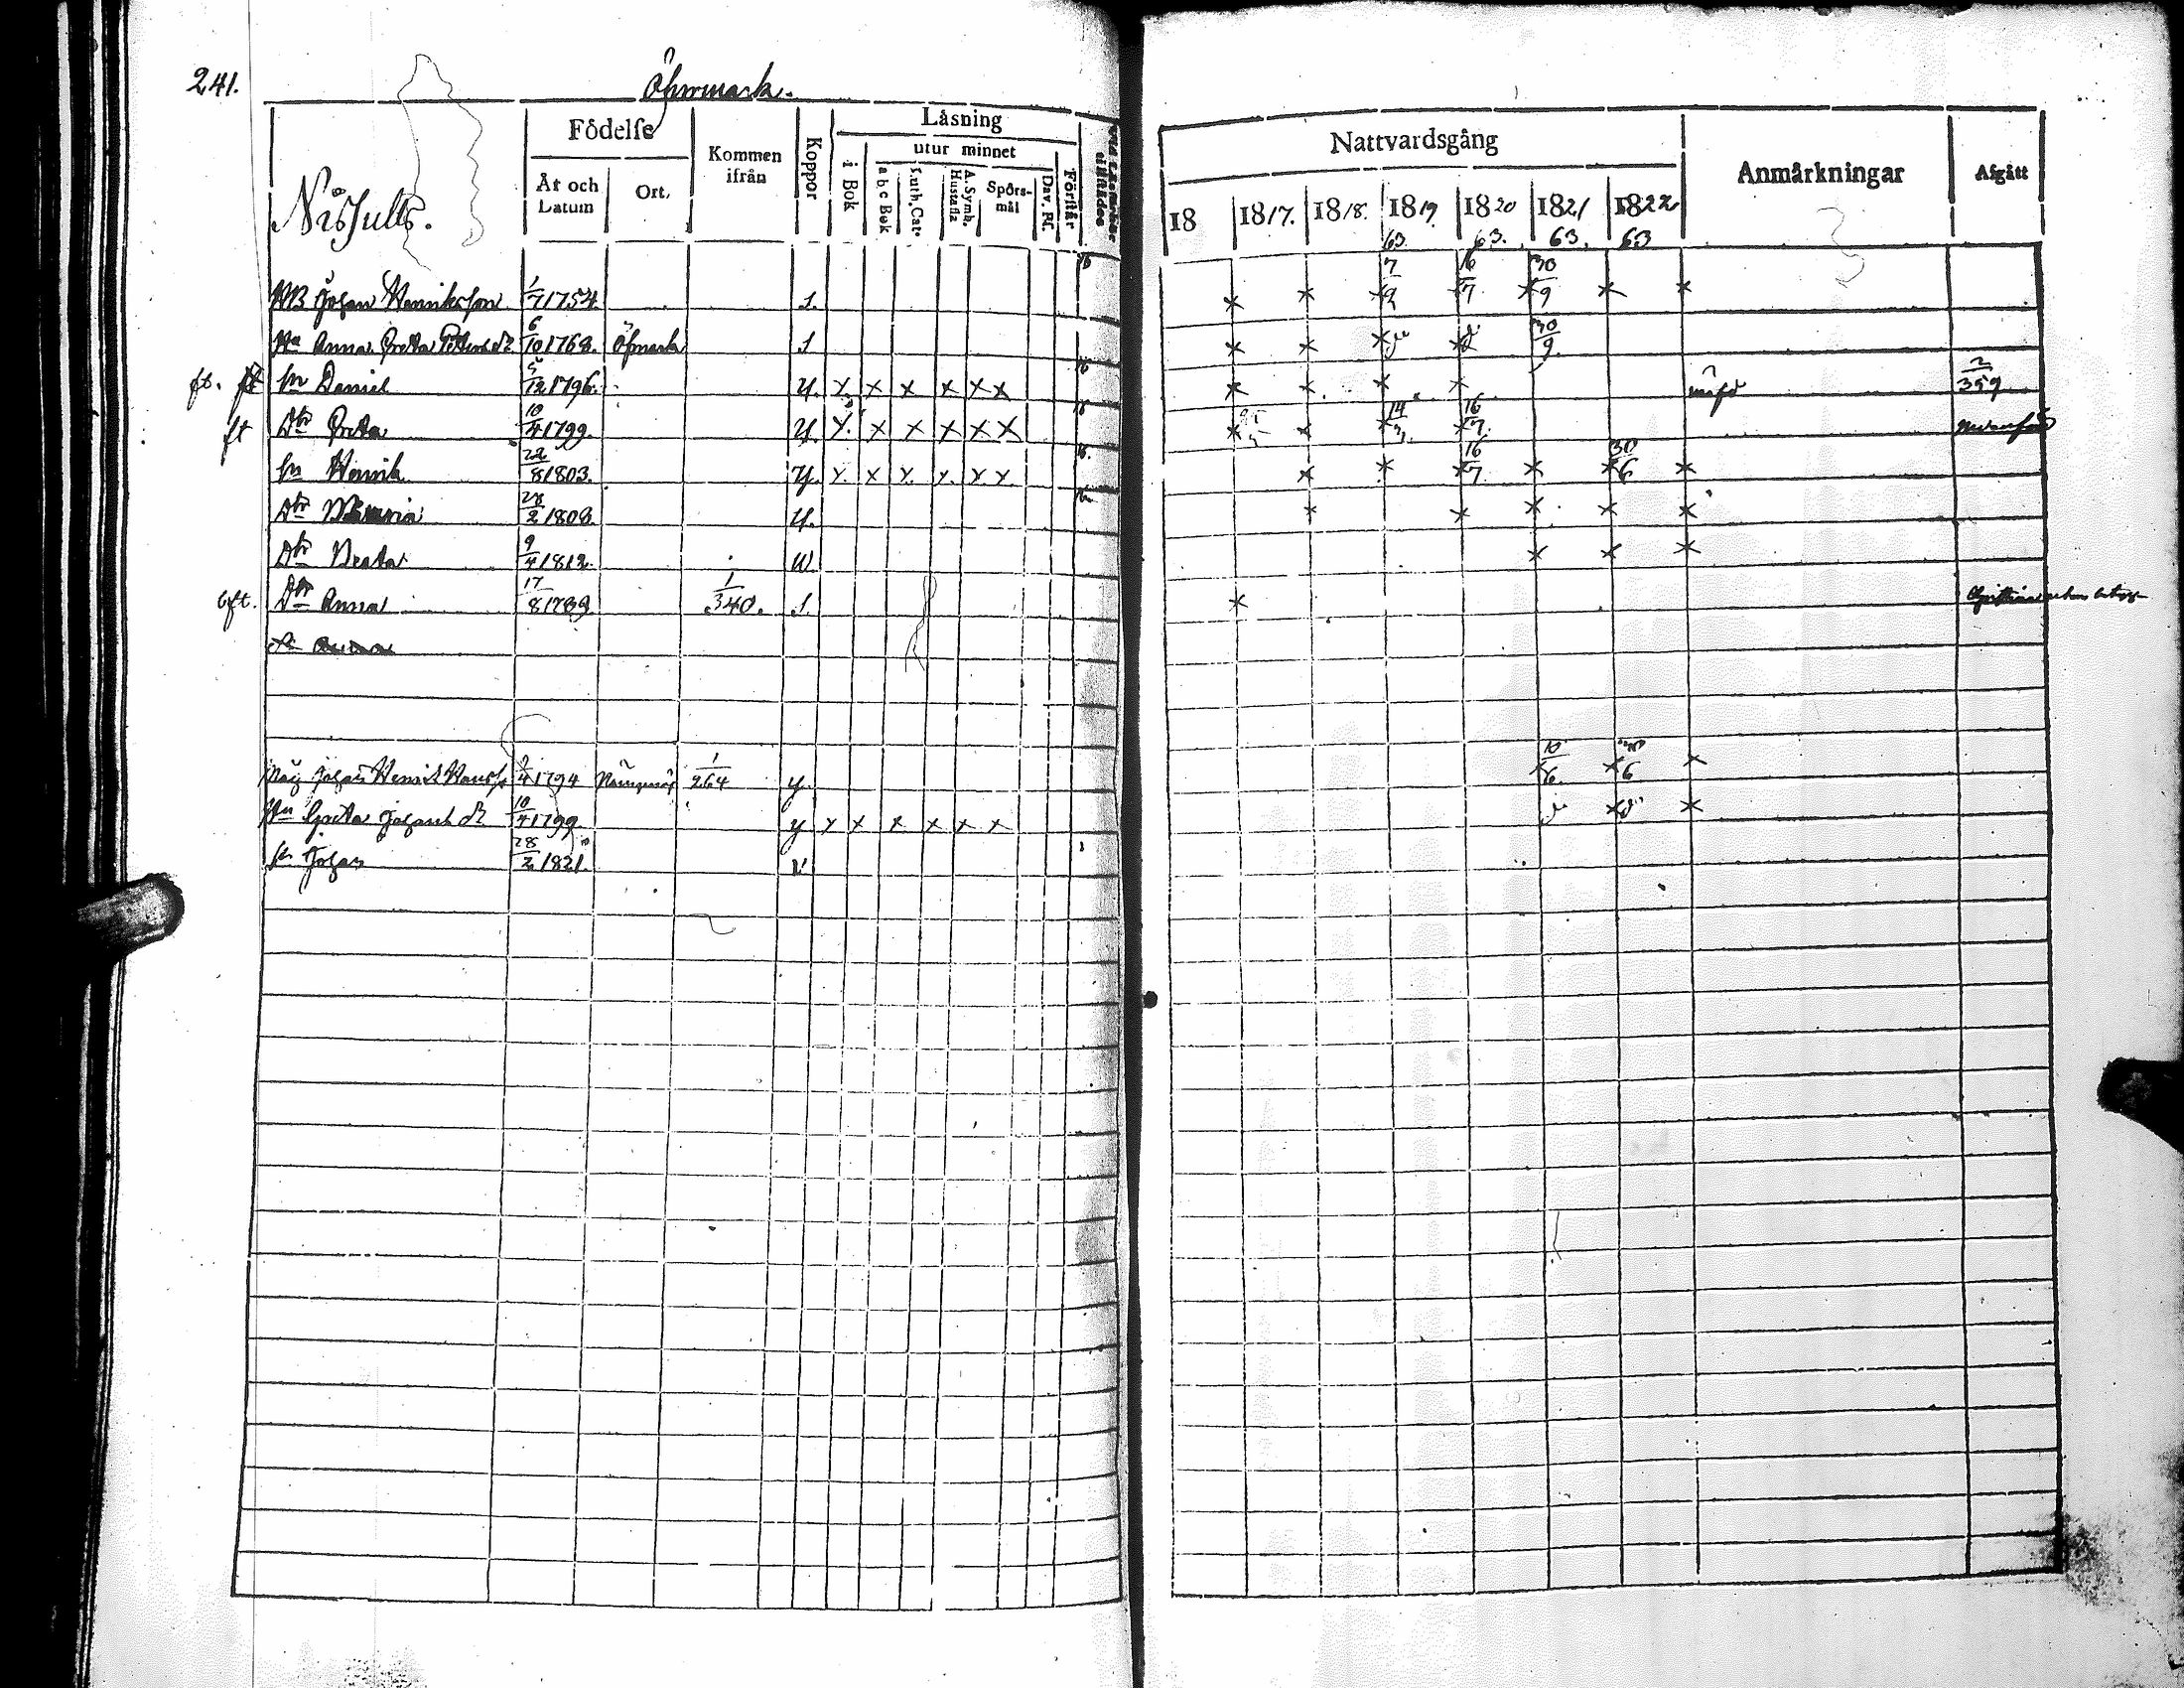 241.
Öhrmark.
Nissulls.
Födelse
År och Datum
Ort.
Kommen ifrån
Koppor
Läsning
i Bok
utur minnet
a b c Bok
Luth. Cat.
A. Symb. Hustafla
Spörs-mål
Dav. Ps.
Förstår
Nattvardsgång
18
1817.
1818.
1819. 63.
1820 63.
1821 63.
1822 63
Anmärkningar
Afgått
Johan Henriksson 1/7 1754. S. x x x 7/9 x 16/7 x 30/9 x x
Hu Anna Greta 6/10 1768. Öhmark S x x x x 30/9
ft. ft Sn Daniel 5/12 1796. U. x x x x x x x x x x 2/359
ft Dtr Greta 10/4 1799. U. x x x x x x x x x 14 x 16/7
Sn Henrik 22/8 1803. U. x x x x x x x x x 16/7 x x 30/6 x
Dtr Maria 28/2 1808. U. x x x x x
Dtr Beata 9/4 1812. U x x x
ft. Dtr Anna 17/8 1789. 1/340. S. x
Måg Johan Henrik 1794 1/264 y. x 10/6. x 6 x
Hu Greta Johansdr 10/4 1799. y x x x x x x x x
Sn Johan 28/2 1821. v